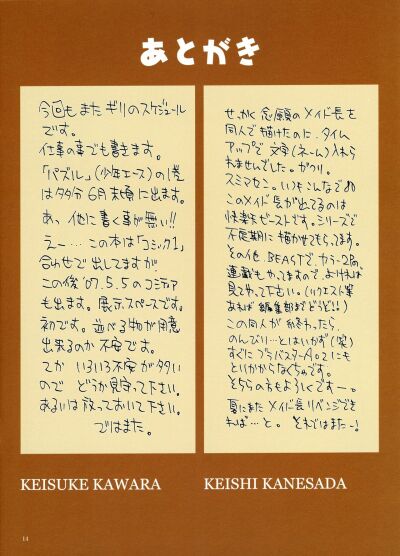 あとがき
今回もまたギリのスケジュール
です。
仕事の事でも書きます。
「パズル」(少年エース)の1巻
は多分6月末頃に出ます。
あっ 他に書く事が無い!!
えー…この本は「コミック1」
合わせで出してますが
この後'07.5.5のコミティア
も出ます。展示スペースです。
初です。並べる物が用意
出来るのか不安です。
てか いろいろ不安がタタい
ので どうか見守って下さい。
あるいは放っておいて下さい。
ではまた。
KEISUKE KAWARA
せっかく念願のメイド長を
同人で描けたのに、タイム
アップで文字(ネーム)入れら
れませんでした。ガクリ。
スミマセン。いつもこんなで
このメイド長が出てるのは
快楽ビーストです。シリーズで
不定期に描かせてもらってます。
その他、BEASTで、カラー2P
連載もやってますので、よければ
見てやって下さい。(リクエスト等
あれば編集部までどうぞ!!)
この同人が終わったら、
のんびり…とはいかず(笑)
すぐにブラバスターAo2にも
とりかからなくちゃです。
そちらの方もよろしくですー。
夏にまたメイド長リベンジでき
れば…と。それではまたー!
KEISHI KANESADA
14